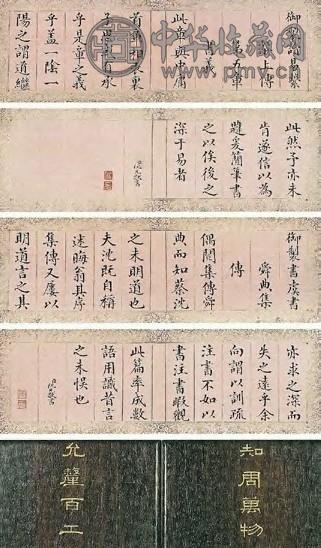 中华收藏网
上傳
第五章
此章與中庸
首章相表裏
乎是章之義
乎蓋一陰一
陽之謂道繼
此然予亦未
肯遂信以為
之以俟後之
深于易者
御製書虞書
舜典集
傳
偶閱集傳舜
典而知蔡沈
之未明道也
夫沈既自稱
述晦翁其序
集傳又屢以
明道言之其
亦求之深而
失之遠乎余
向謂以訓疏
注書不如以
書注書暇觀
此篇率成數
語用識昔言
之未悞也
知周萬物
允釐百工